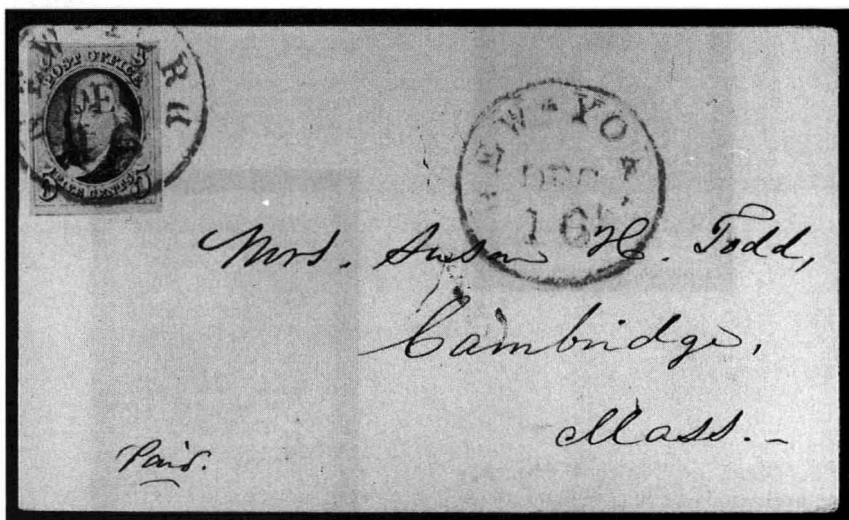 NEW-YORK
POST OFFICE
DE
5 FIVE CENTS 5
NEW-YORK
DEC
16
Mrs. Susan H. Todd,
Cambridge,
Mass.-
Paid.